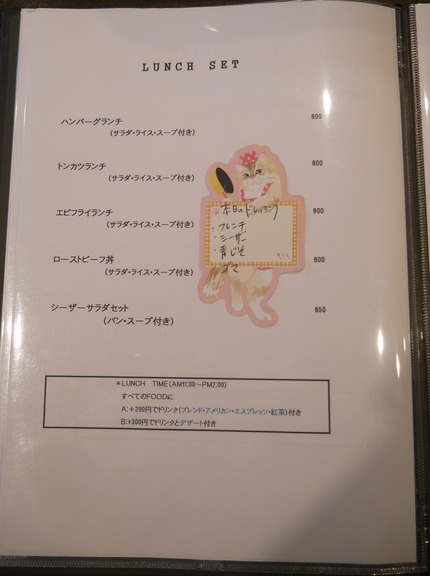 LUNCH SET
ハンバーグランチ 800
(サラダ・ライス・スープ付き)
トンカツランチ 800
(サラダ・ライス・スープ付き)
本日のドレッシング
エビフライランチ 800
(サラダ・ライス・スープ付き)
・フレンチ
・シーザー
・青じそ
ゴマ
ローストビーフ丼 800
(サラダ・ライス・スープ付き)
シーザーサラダセット 850
(パン・スープ付き)
*LUNCH TIME(AM11:00～PM2:00)
すべてのFOODに
A:+200円でドリンク(ブレンド・アメリカン・エスプレッソ・紅茶)付き
B:+300円でドリンクとデザート付き